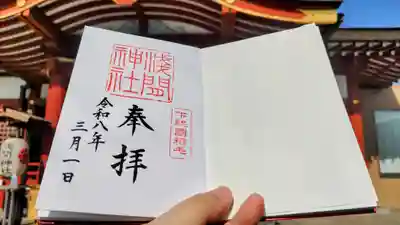 浅間
神社
奉拝
令和八年
三月一日